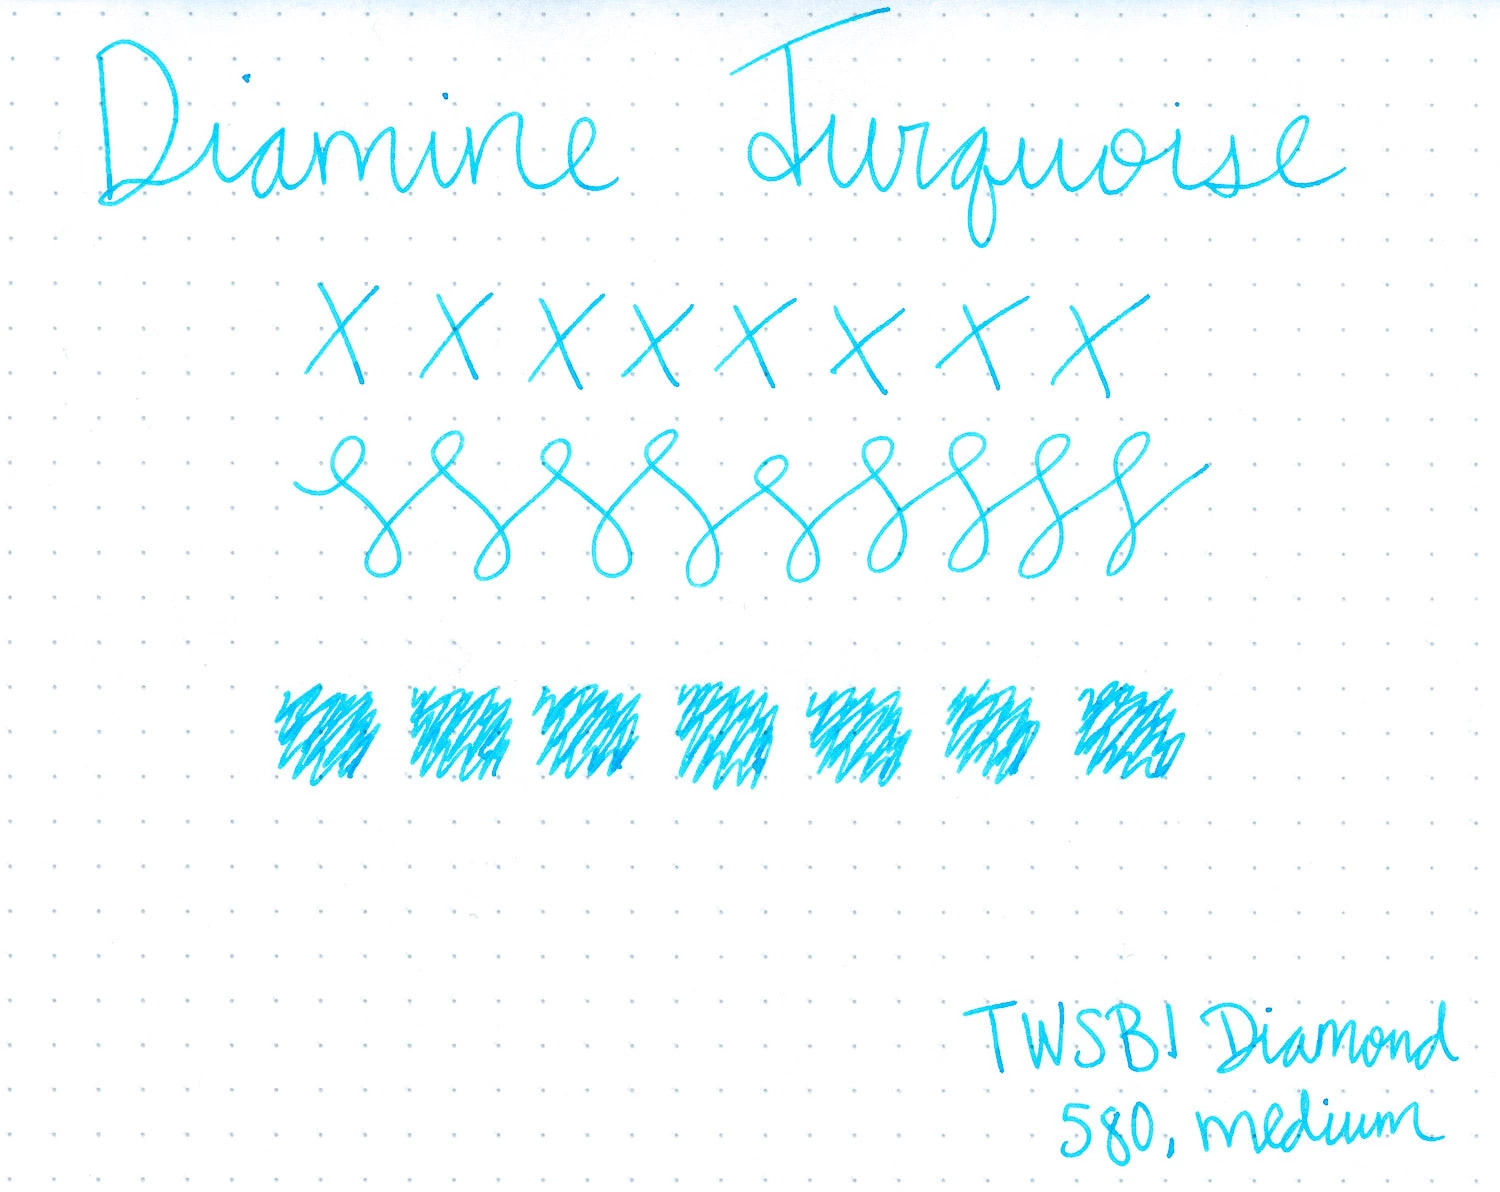 Diamine Turquoise
X X X X X X X X
TWSBI Diamond
580, medium